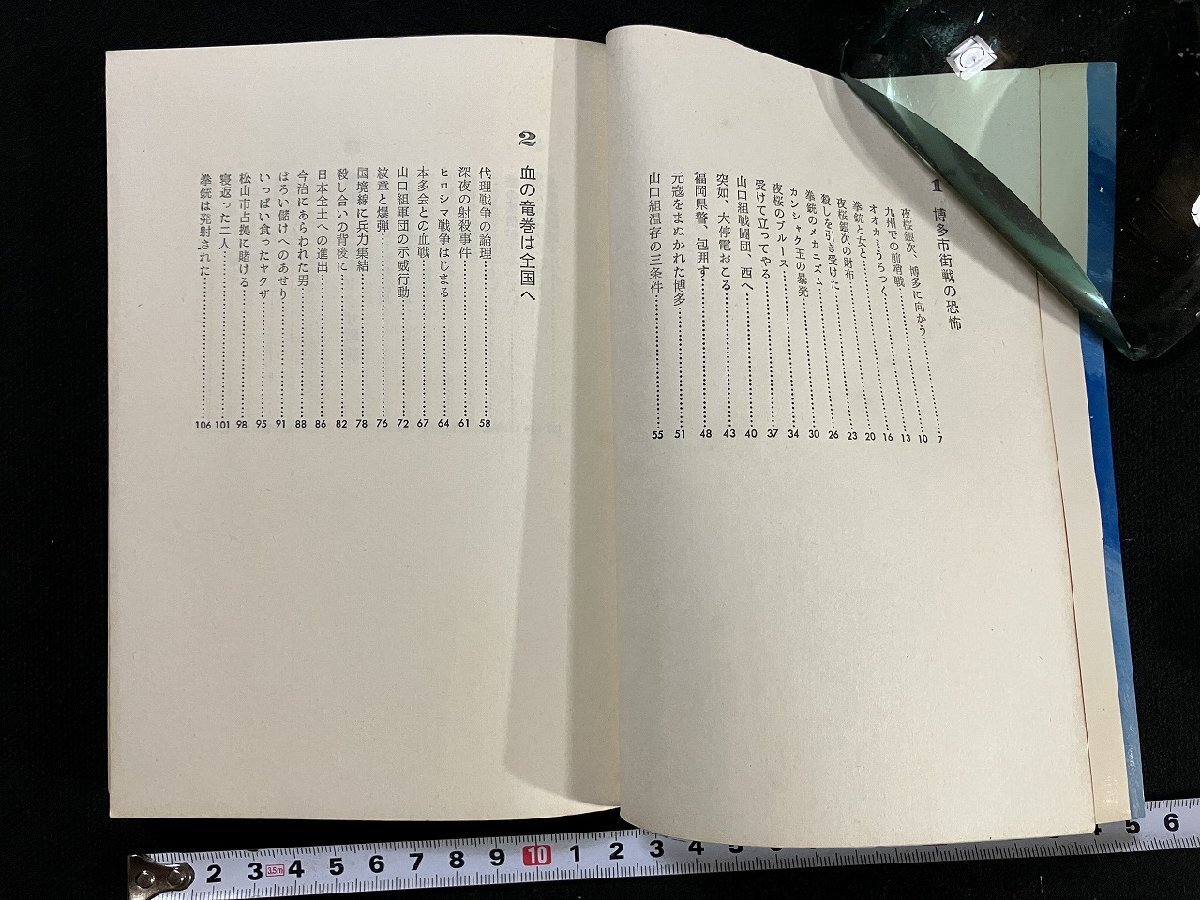 1 博多市街戦の恐怖
夜桜銀次、博多に向かう……7
九州での前哨戦……10
オオカミうろつく……13
拳銃と女と……16
夜桜銀次の財布……20
殺しを引き受けた……23
拳銃のメカニズム……26
カンシャク玉の暴発……30
夜桜のブルース……34
受けて立ってやる……37
山口組戦闘団、西へ……40
突如、大停電おこる……43
福岡県警、包囲す……48
元寇をまぬかれた博多……51
山口組温存の三条件……55
2 血の竜巻は全国へ
代理戦争の論理……58
深夜の射殺事件……61
ヒロシマ戦争はじまる……64
本多会との血戦……67
山口組軍団の示威行動……72
紋章と爆弾……76
国境線に兵力集結……78
殺し合いの背後に……82
日本全土への進出……86
今治にあらわれた男……88
ぼろい儲けへのあせり……91
いっぱい食ったヤクザ……95
松山市占拠に賭ける……98
寝返った二人……101
拳銃は発射された……106
2 3 3.5m 4 5 6 7 8 9 10 1 2 3 4 5 6